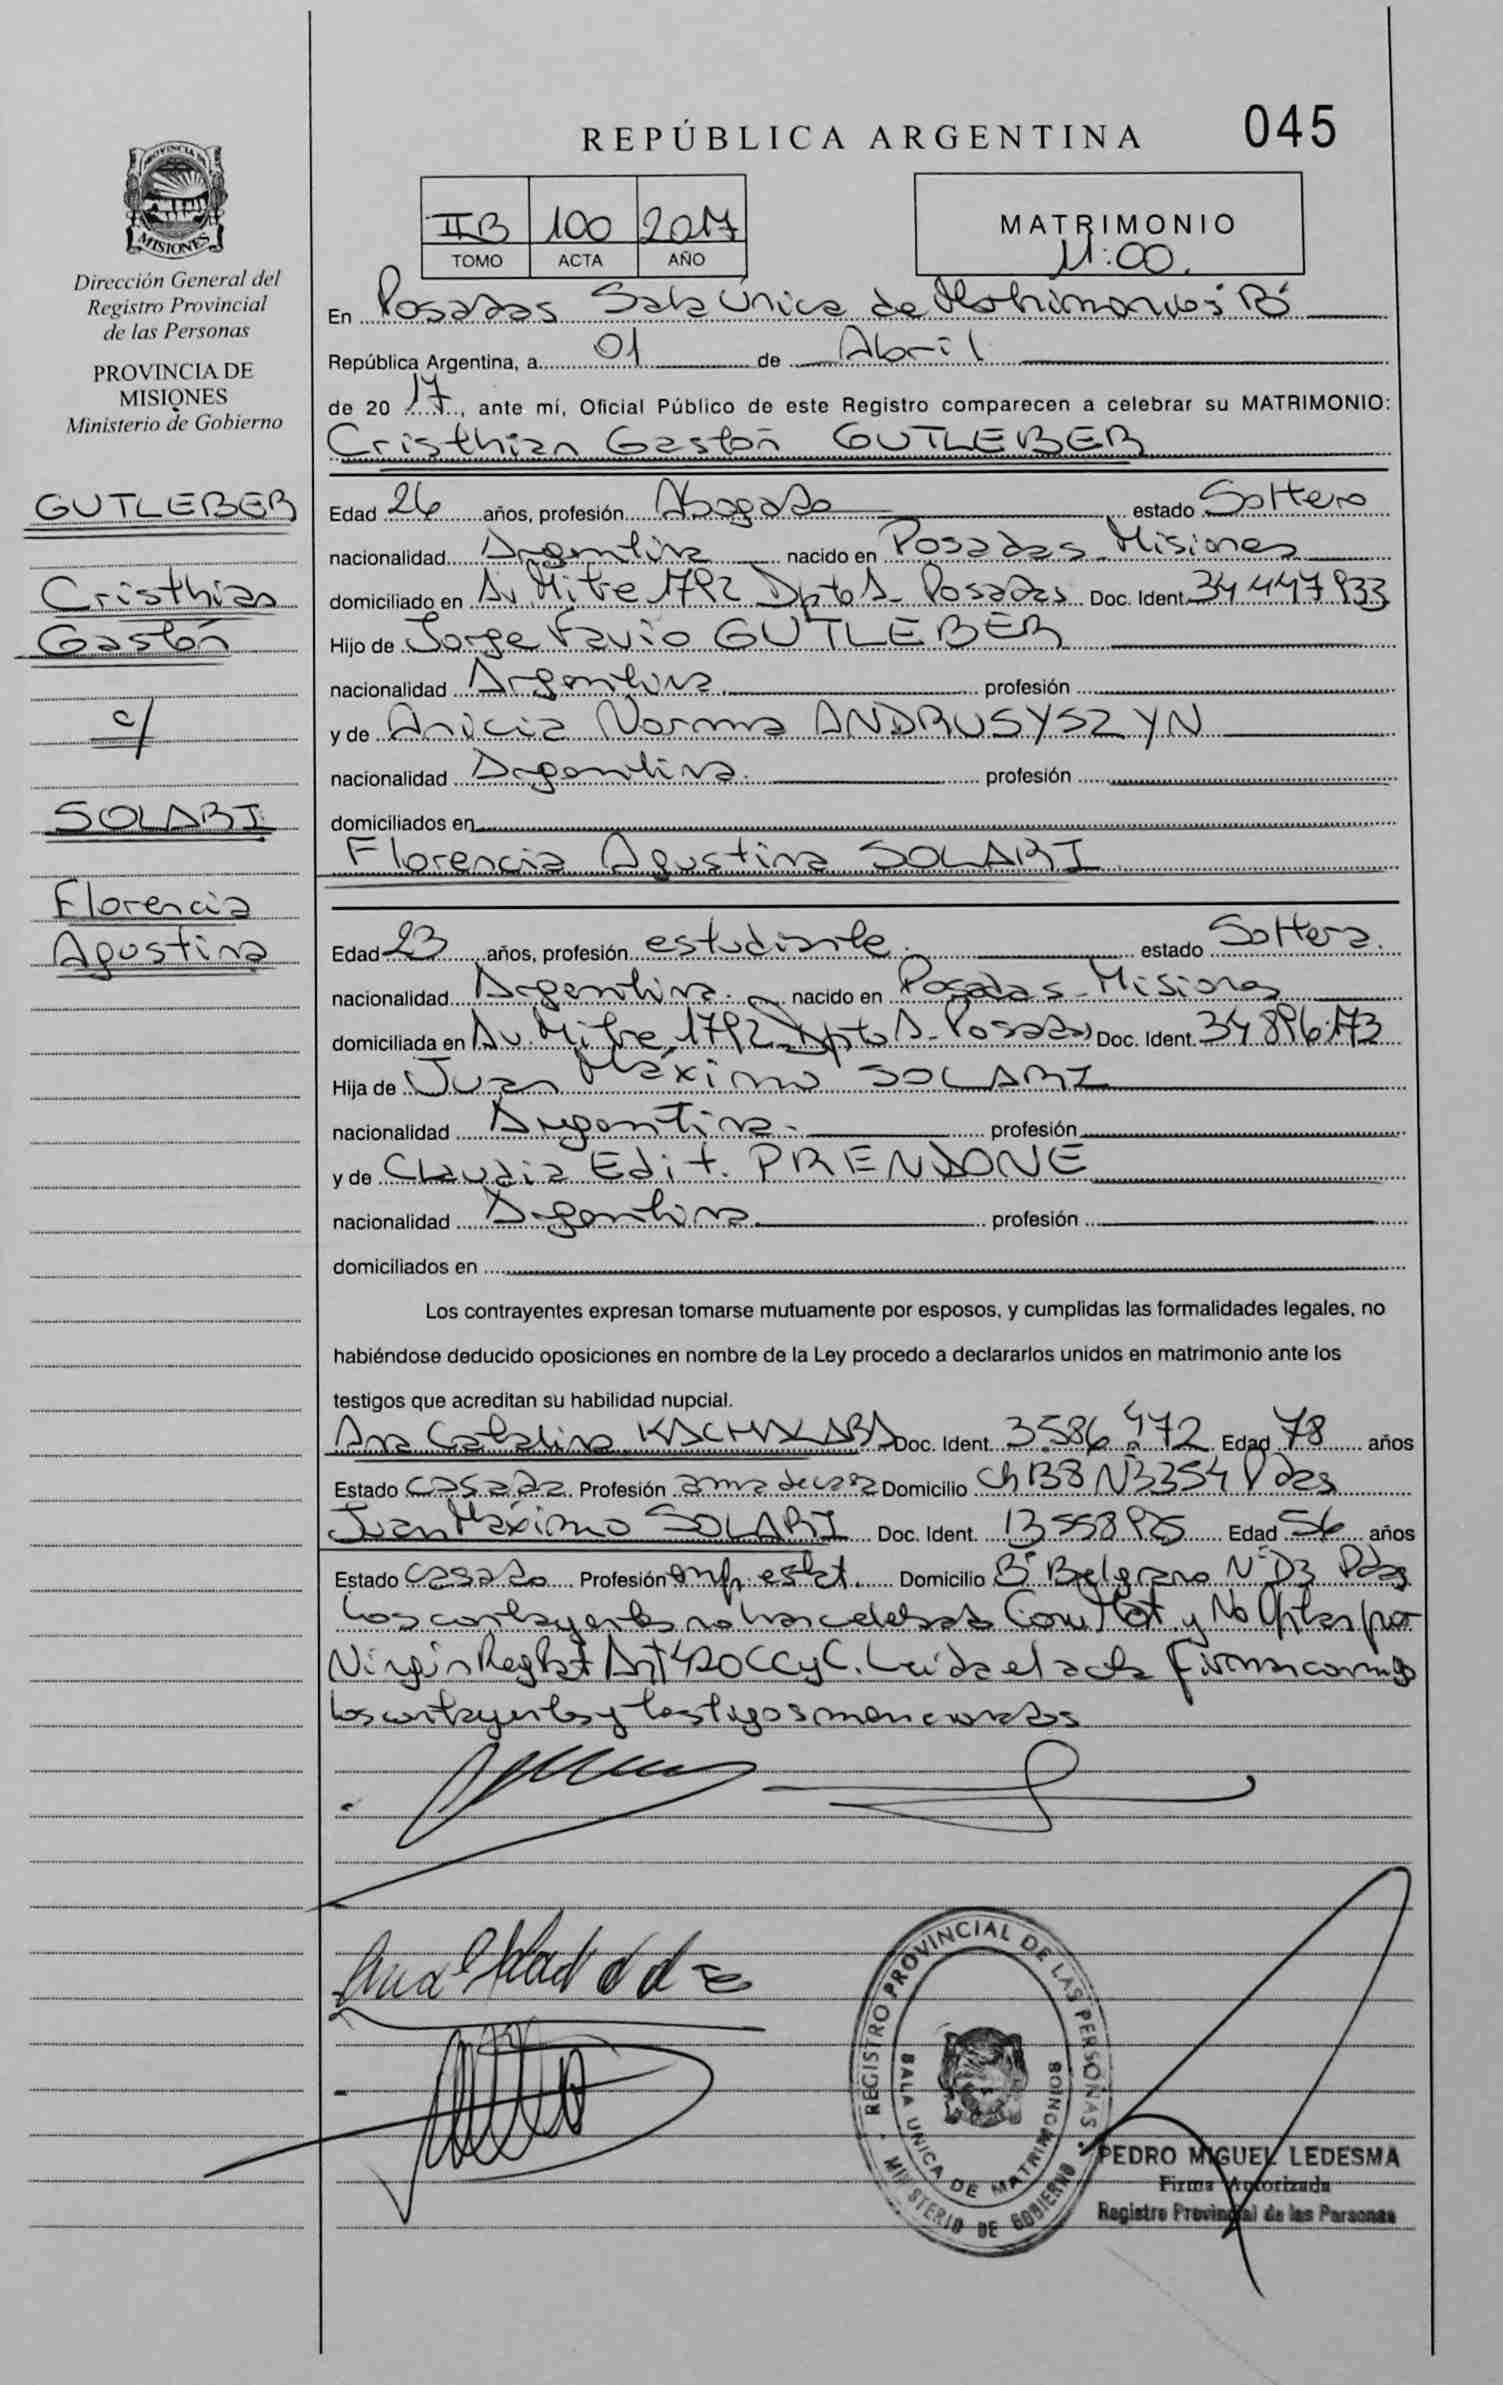 REPÚBLICA ARGENTINA
045
PROVINCIA DE
MISIONES
Dirección General del
Registro Provincial
de las Personas
PROVINCIA DE
MISIONES
Ministerio de Gobierno
IIB 100 2017
TOMO ACTA AÑO
MATRIMONIO
11:00.
En Posadas Sala Única de Matrimonios B°
República Argentina, a 01 de Abril
de 20 17, ante mí, Oficial Público de este Registro comparecen a celebrar su MATRIMONIO:
Cristhian Gastón GUTLEBER
GUTLEBER
Cristhian
Gastón
c/
SOLARI
Florencia
Agustina
Edad 26 años, profesión Abogado estado Soltero
nacionalidad Argentina nacido en Posadas Misiones
domiciliado en Av Mitre 1792 Dpto A- Posadas Doc. Ident. 34 447 933
Hijo de Jorge Favio GUTLEBER
nacionalidad Argentina profesión
y de Anicia Norma ANDRUSYSZYN
nacionalidad Argentina profesión
domiciliados en
Florencia Agustina SOLARI
Edad 23 años, profesión estudiante. estado Soltera.
nacionalidad Argentina. nacido en Posadas - Misiones
domiciliada en Av. Mitre 1792 Dpto A- Posadas Doc. Ident. 34 896 173
Hija de Juan Máximo SOLARI
nacionalidad Argentina. profesión
y de Claudia Edit. PRENDONE
nacionalidad Argentina profesión
domiciliados en
Los contrayentes expresan tomarse mutuamente por esposos, y cumplidas las formalidades legales, no
habiéndose deducido oposiciones en nombre de la Ley procedo a declararlos unidos en matrimonio ante los
testigos que acreditan su habilidad nupcial.
Ana Catalina Doc. Ident. 3.586.472 Edad 78 años
Estado casada Profesión ama de casa Domicilio Ch 138 N°3354 Pdas
Juan Máximo SOLARI Doc. Ident. 13 558 925 Edad 56 años
Estado casado Profesión emp. estat. Domicilio B° Belgrano N° D3 Pdas
Los contrayentes no han celebrado Conv Mat y No Optan por
Ningún Reg Pat Art 420 CCyC. Leída el acta firman conmigo
los contrayentes y testigos mencionados
REGISTRO PROVINCIAL DE LAS PERSONAS
SALA UNICA DE MATRIMONIOS
MINISTERIO DE GOBIERNO
PEDRO MIGUEL LEDESMA
Firma Autorizada
Registro Provincial de las Personas